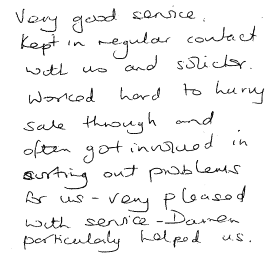 Very good service.
Kept in regular contact
with us and solicitor.
Worked hard to hurry
sale through and
often got involved in
sorting out problems
for us - very pleased
with service - Darren
particularly helped us.